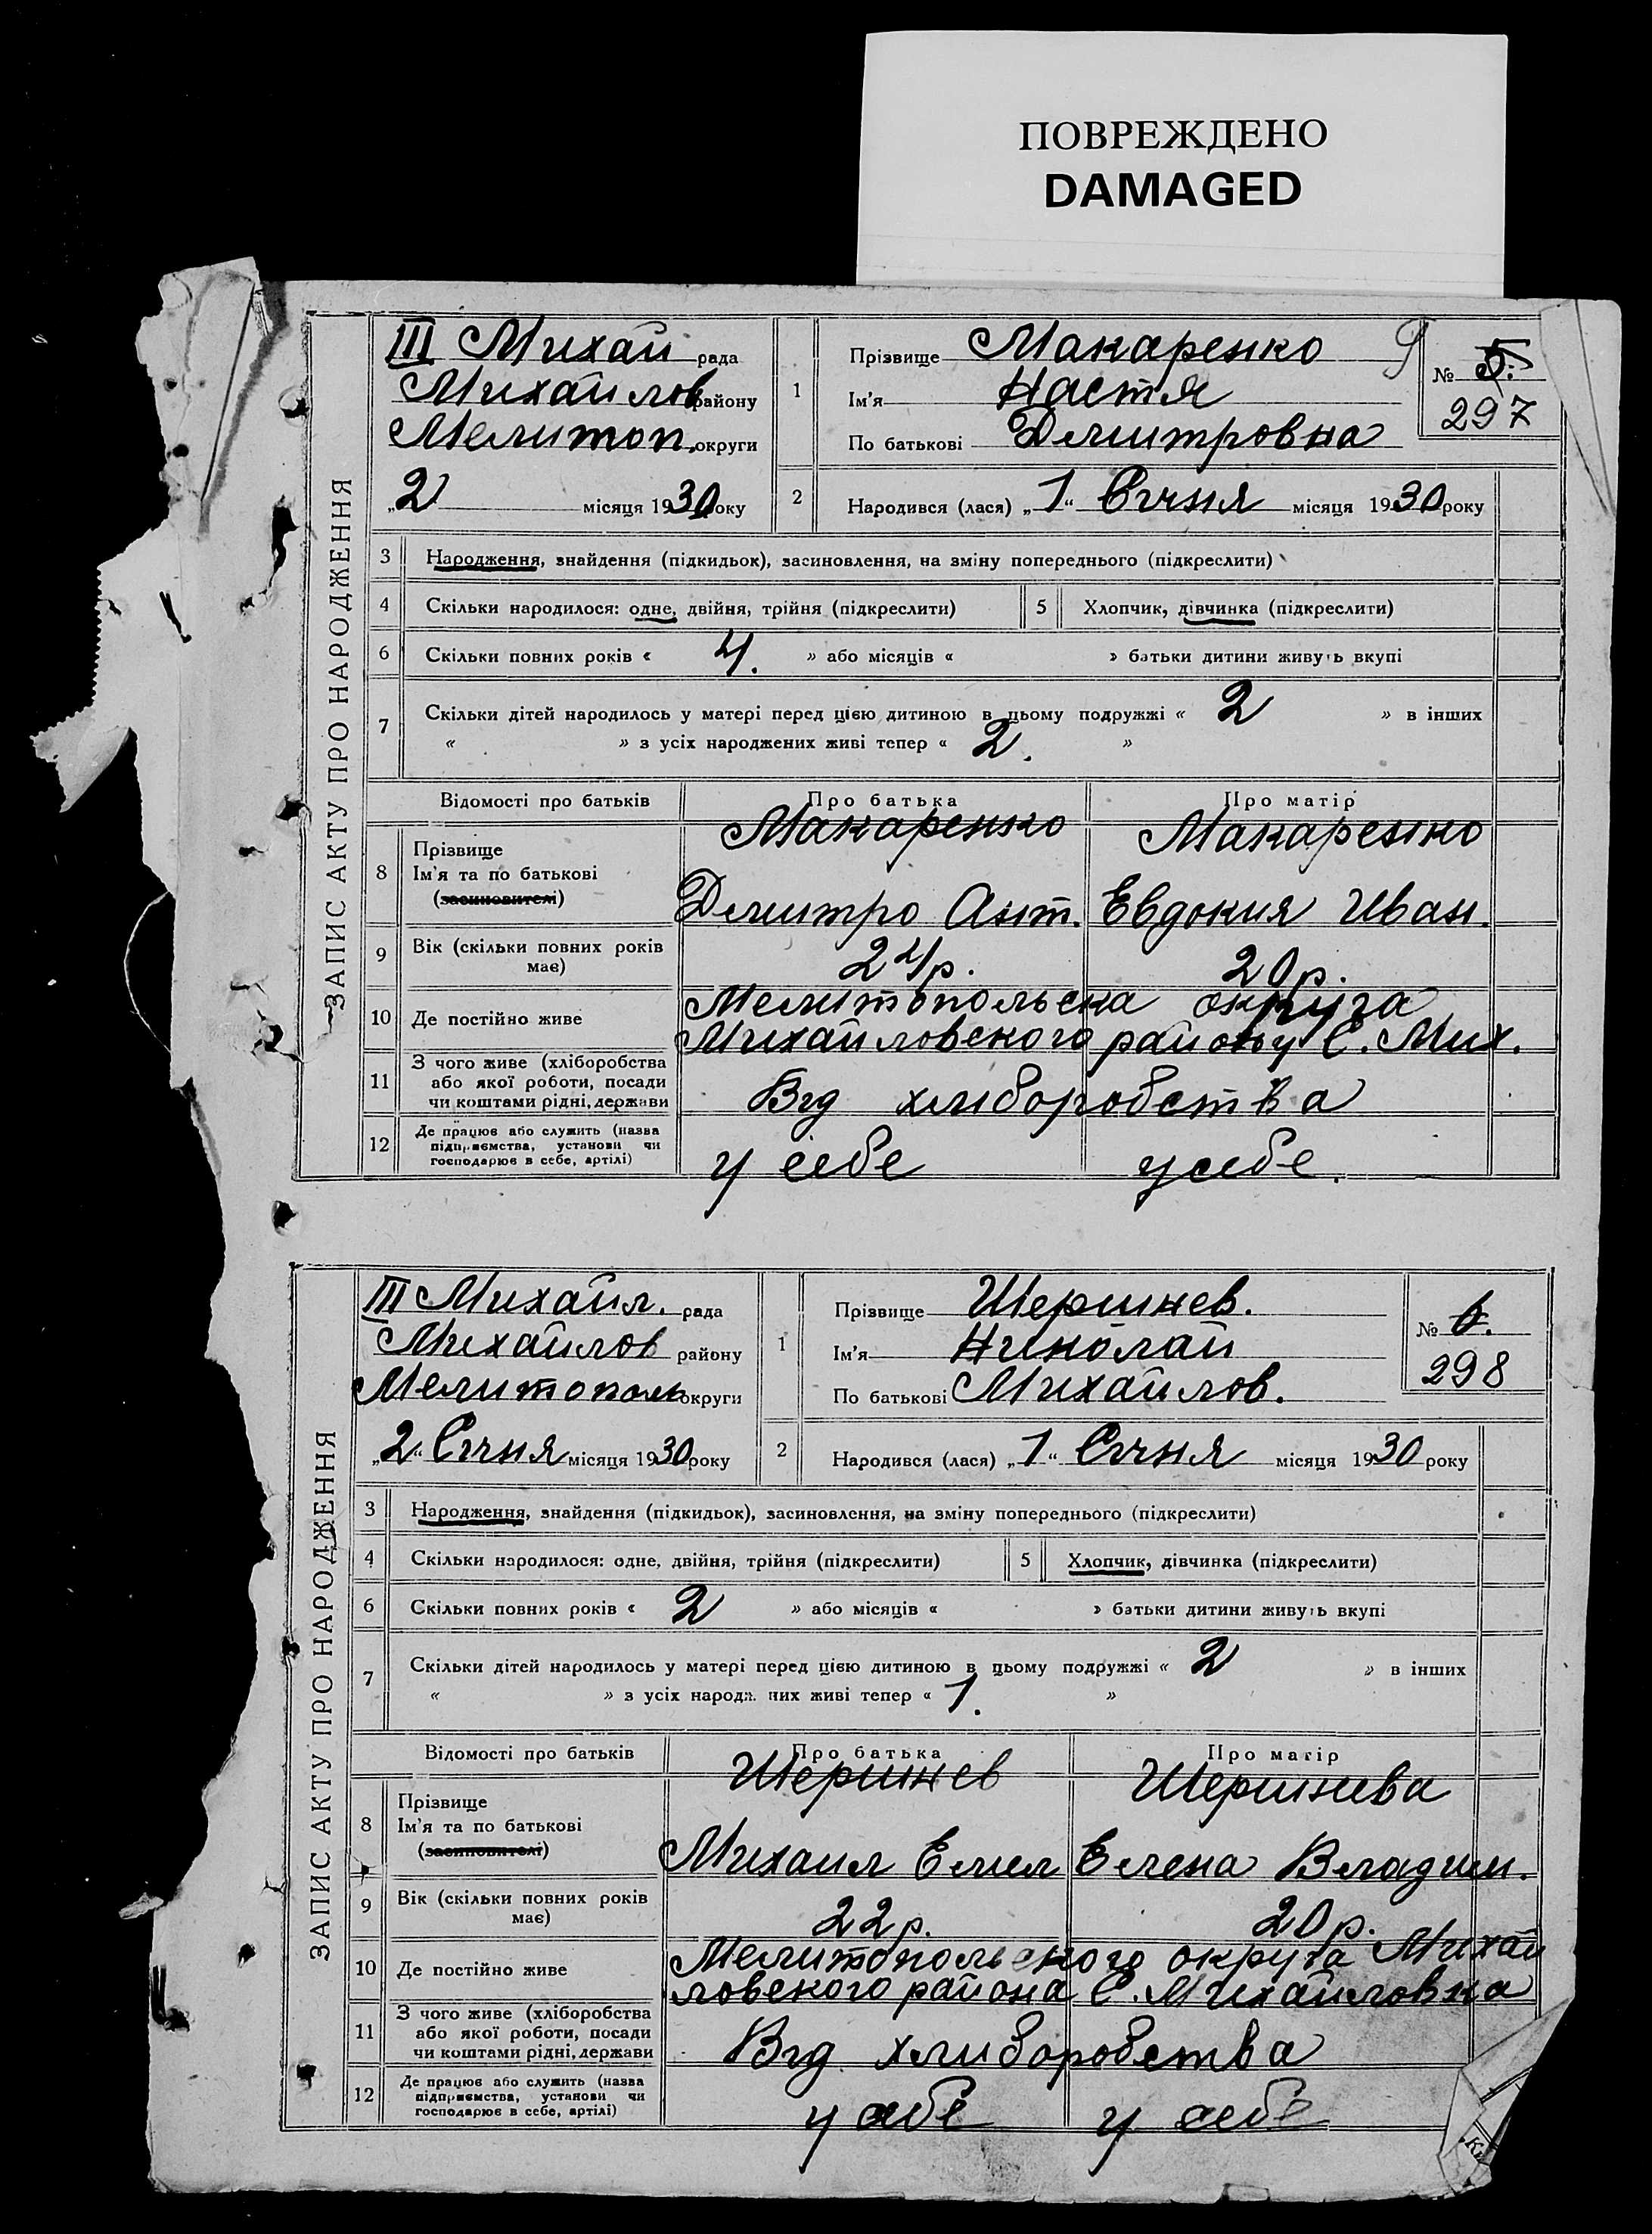 ПОВРЕЖДЕНО
DAMAGED
ЗАПИС АКТУ ПРО НАРОДЖЕННЯ
III Михай рада
Михайлов району
Мелитоп. округи
„2 місяця 1930 року
1
Прізвище Макаренко
Ім'я Настя
По батькові Дмитровна
№ 5.
297
2
Народився (лася) „1“ Січня місяця 1930 року
3 Народження, знайдення (підкидьок), засиновлення, на зміну попереднього (підкреслити)
4 Скільки народилося: одне, двійня, трійня (підкреслити) 5 Хлопчик, дівчинка (підкреслити)
6 Скільки повних років « 4. » або місяців « » батьки дитини живуть вкупі
7 Скільки дітей народилось у матері перед цією дитиною в цьому подружжі « 2 » в інших
« » з усіх народжених живі тепер « 2. »
Відомості про батьків Про батька Про матір
8 Прізвище Макаренко Макаренко
Ім'я та по батькові
(засиновителі) Дмитро Ант. Евдокия Иван.
9 Вік (скільки повних років має) 24р. 20р.
10 Де постійно живе Мелитопольска округа
Михайловского району С. Мих.
11 З чого живе (хліборобства
або якої роботи, посади
чи коштами рідні, держави Від хлиборобства
12 Де працює або служить (назва
підприємства, установи чи
господарює в себе, артілі) у себе у себе.
ЗАПИС АКТУ ПРО НАРОДЖЕННЯ
III Михайл. рада
Михайлов району
Мелитополь округи
„2“ Січня місяця 1930 року
1
Прізвище Шершнев.
Ім'я Николай
По батькові Михайлов.
№ 6.
298
2
Народився (лася) „1“ Січня місяця 1930 року
3 Народження, знайдення (підкидьок), засиновлення, на зміну попереднього (підкреслити)
4 Скільки народилося: одне, двійня, трійня (підкреслити) 5 Хлопчик, дівчинка (підкреслити)
6 Скільки повних років « 2 » або місяців « » батьки дитини живуть вкупі
7 Скільки дітей народилось у матері перед цією дитиною в цьому подружжі « 2 » в інших
« » з усіх народж. них живі тепер « 1. »
Відомості про батьків Про батька Про матір
8 Прізвище Шершнев Шершнева
Ім'я та по батькові
(засиновителі) Михаил Емел Елена Владим.
9 Вік (скільки повних років має) 22р. 20р.
10 Де постійно живе Мелитопольского округа Михай
ловского района С. Михайловка
11 З чого живе (хліборобства
або якої роботи, посади
чи коштами рідні, держави Від хлиборобства
12 Де працює або служить (назва
підприємства, установи чи
господарює в себе, артілі) у себе у себе